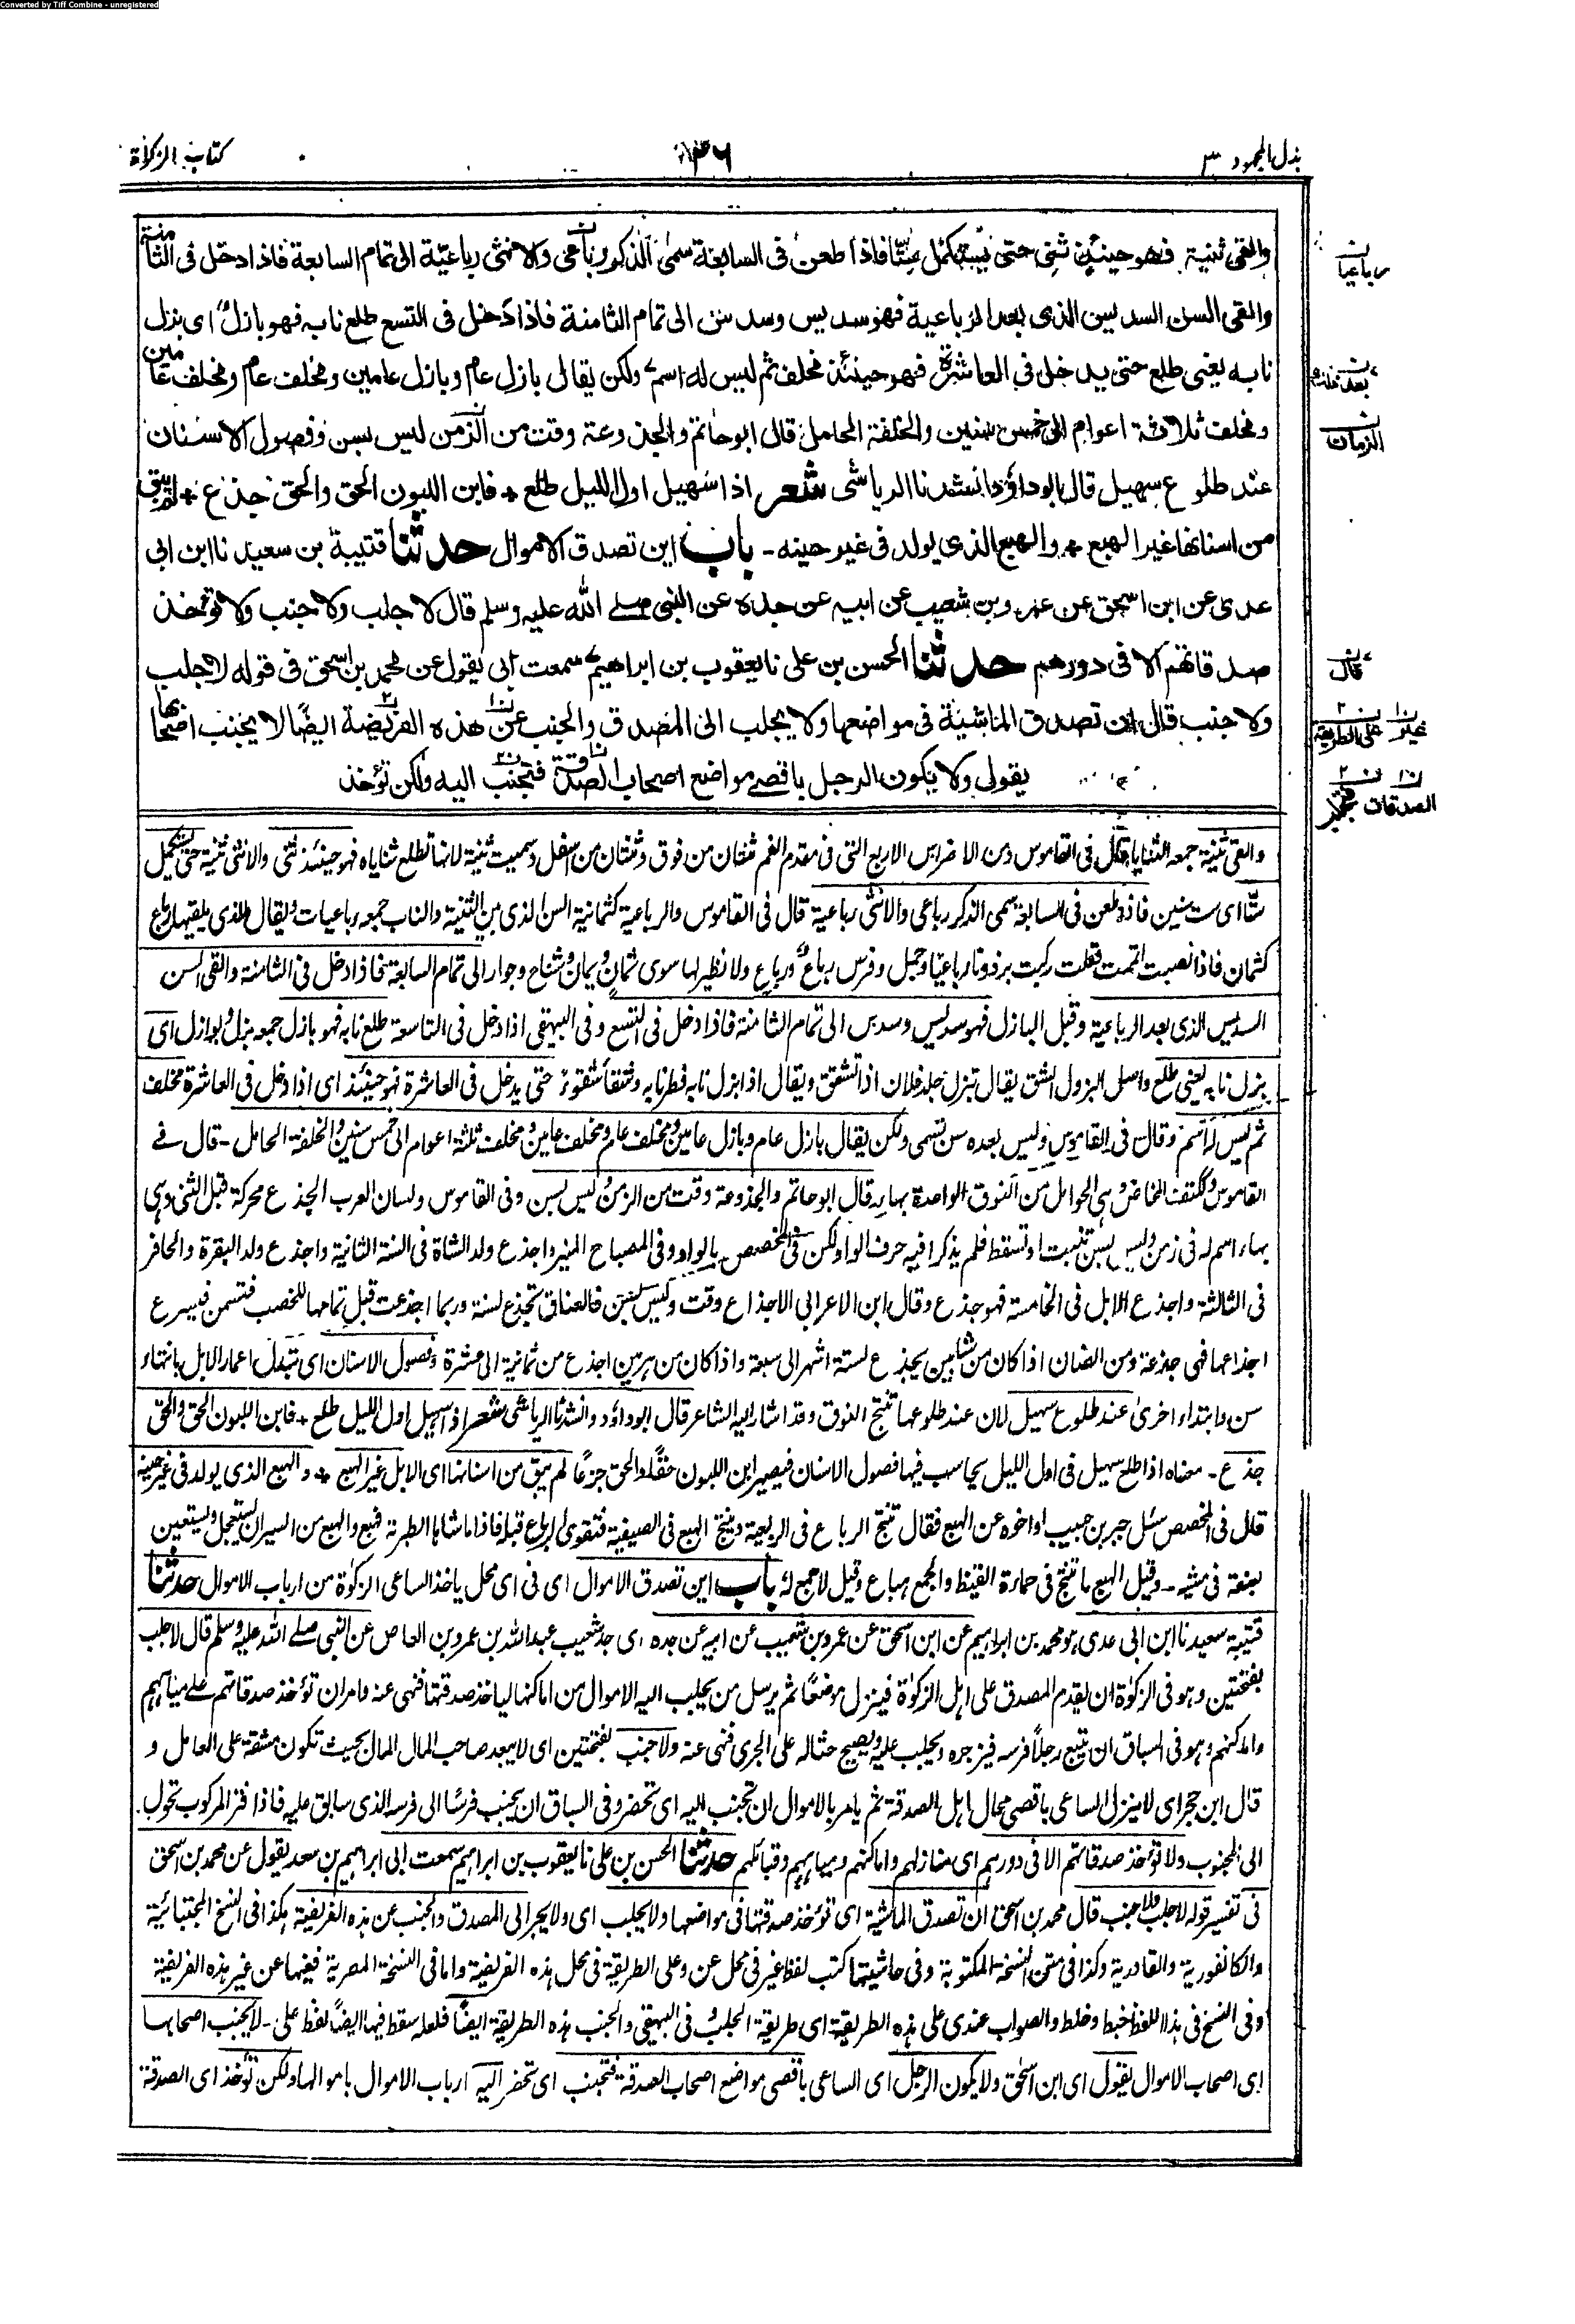 Converted by Tiff Combine - unregistered
بذل المجهود ٣
٣٦
كتاب الزكاة
والقى ثنية فهو حينئذ ثنى حتى يستكمل ستا فاذا طعن فى السابعة سمى الذكور رباعى والانثى رباعية الى تمام السابعة فاذا دخل فى الثامنة
والقى السن السديس الذى بعد الرباعية فهو سديس وسدس الى تمام الثامنة فاذا دخل فى التسع طلع نابه فهو بازل اى بزل
نابه يعنى طلع حتى يدخل فى العاشرة فهو حينئذ مخلف ثم ليس له اسم ولكن يقال بازل عام وبازل عامين ومخلف عام ومخلف عامين
ومخلف ثلاثة اعوام الى خمس سنين والخلفة الحامل قال ابو حاتم والجذوعة وقت من الزمن ليس بسن وفصول الاسنان
عند طلوع سهيل قال ابو داؤد انشدنا الرياشى شعر اذا سهيل اول الليل طلع + فابن اللبون الحق والحق جذع + لم يبق
من اسنانها غير الهبع + والهبع الذى يولد فى غير حينه - باب اين تصدق الاموال حدثنا قتيبة بن سعيد نا ابن ابى
عدى عن ابن اسحق عن عمرو بن شعيب عن ابيه عن جده عن النبى صلے الله عليه وسلم قال لا جلب ولا جنب ولا تؤخذ
صدقاتهم الا فى دورهم حدثنا الحسن بن على نا يعقوب بن ابراهيم سمعت ابى يقول عن محمد بن اسحق فى قوله لا جلب
ولا جنب قال ان تصدق الماشية فى مواضعها ولا يجلب الى المصدق والجنب عن هذه الفريضة ايضًا لا يجنب اصحابها
يقول ولا يكون الرجل باقصے مواضع اصحاب الصدقة فتجنب اليه ولكن تؤخذ
رباعيا
الزمان
قال
غير على الطريقة
الصدقات
والقى ثنية جمعه الثنايا قال فى القاموس ومن الاضراس الاربع التى فى مقدم الفم ثنتان من فوق وثنتان من اسفل وسميت ثنية لانها تطلع ثناياه فهو حينئذ ثنى والانثى ثنية حتى يستكمل
ستا اى ست سنين فاذا طعن فى السابعة سمى الذكر رباعى والانثى رباعية قال فى القاموس والرباعية كثمانية السن الذى بين الثنية والناب جمعه رباعيات ويقال للذى يلقيها رباع
كثمان فاذا نصبت اتممت فقلت ركبت برذونا رباعيا وجمل وفرس رباع ورباع ولا نظير لها سوى ثمان ويمان وشناح وجوار الى تمام السابعة فاذا دخل فى الثامنة والقى السن
السديس الذى بعد الرباعية وقبل البازل فهو سديس وسدس الى تمام الثامنة فاذا دخل فى التسع وفى البيهقى اذا دخل فى التاسعة طلع نابه فهو بازل جمعه بزل وبوازل اى
بزل نابه يعنى طلع واصل البزول الشق يقال تبزل جلد فلان اذا تشقق ويقال اذا بزل نابه فطر نابه وشقأ شقوء حتى يدخل فى العاشرة فهو حينئذ اى اذا دخل فى العاشرة مخلف
ثم ليس له اسم وقال فى القاموس وليس بعده سن تسمى ولكن يقال بازل عام وبازل عامين ومخلف عام ومخلف عامين ومخلف ثلثة اعوام الى خمس سنين والخلفة الحامل - قال فے
القاموس وككتف المخاض وهى الحوامل من النوق الواحدة بهاء قال ابو حاتم والجذوعة وقت من الزمن ليس بسن وفى القاموس ولسان العرب الجذع محركة قبل الثنى وهى
بهاء اسم له فى زمن وليس بسن تنبت او تسقط فلم يذكرا فيه حرف الواو لكن فى المخصص بالواو وفى المصباح المنير واجذع ولد الشاة فى السنة الثانية واجذع ولد البقرة والحافر
فى الثالثة واجذع الابل فى الخامسة فهو جذع وقال ابن الاعرابى الاجذاع وقت وليس بسن فالعناق تجذع لسنة وربما اجذعت قبل تمامها للخصب فتسمن فيسرع
اجذاعها فهى جذعة ومن الضان اذا كان من شابين يجذع لستة اشهر الى سبعة واذا كان من هرمين اجذع من ثمانية الى عشرة وفصول الاسنان اى تبدل اعمار الابل بانتهاء
سن وابتداء اخرى عند طلوع سهيل لان عند طلوعها تنتج النوق وقد اشار اليه الشاعر قال ابو داؤد وانشدنا الرياشى شعر اذا سهيل اول الليل طلع + فابن اللبون الحق والحق
جذع - معناه اذا طلع سهيل فى اول الليل يحاسب فيها فصول الاسنان فيصير ابن اللبون حقًا والحق جزعًا لم يبق من اسنانها اى الابل غير الهبع + والهبع الذى يولد فى غير حينه
قال فى المخصص سئل جبر بن حبيب اواخوه عن الهبع فقال تنتج الرباع فى الربعية وينتج الهبع فى الصيفية فتقوى الرباع قبله فاذا ماشاها ابطرته فهبع والهبع من السير ان يستعجل ويستعين
بعنقه فى مشيه - وقيل الهبع ما نتج فى حمارة القيظ والجمع هباع وقيل لا جمع له باب اين تصدق الاموال اى فى اى محل ياخذ الساعى الزكوٰة من ارباب الاموال حدثنا
قتيبة سعيد نا ابن ابى عدى هو محمد بن ابراهيم عن ابن اسحق عن عمرو بن شعيب عن ابيه عن جده اى جد شعيب عبد الله بن عمرو بن العاص عن النبى صلے الله عليه وسلم قال لا جلب
بفتحتين وهو فى الزكوٰة ان يقدم المصدق على اهل الزكوٰة فينزل موضعًا ثم يرسل من يجلب اليه الاموال من اماكنها لياخذ صدقتها فنهى عنه وامر ان تؤخذ صدقاتهم علے مياههم
واماكنهم وهو فى السباق ان يتبع رجلاً فرسه فيزجره ويجلب عليه ويصيح حثاله على الجرى فنهى عنه ولا جنب بفتحتين اى لا يبعد صاحب المال المال بحيث تكون مشقة على العامل و
قال ابن حجر اى لا ينزل الساعى باقصى محال اهل الصدقة ثم يامر بالاموال ان تجنب اليه اى تحضر وفى السباق ان يجنب فرسًا الى فرسه الذى سابق عليه فاذا فتر المركوب تحول
الى المجنوب ولا تؤخذ صدقاتهم الا فى دورهم اى منازلهم واماكنهم ومياههم وقبائلهم حدثنا الحسن بن على نا يعقوب بن ابراهيم سمعت ابى ابراهيم بن سعد يقول عن محمد بن اسحق
فى تفسير قوله لا جلب ولا جنب قال محمد بن اسحق ان تصدق الماشية اى تؤخذ صدقتها فى مواضعها ولا يجلب اى ولا يجر الى المصدق والجنب عن هذه الفريضة هكذا فى النسخ المجتبائية
والكانفورية والقادرية وكذا فى متن النسخة المكتوبة وفى حاشيتها كتب لفظ غير فى محل عن وعلى الطريقة فى محل هذه الفريضة واما فى النسخة المصرية ففيها عن غير هذه الفريضة
وفى النسخ فى هذا اللفظ خبط وخلط والصواب عندى على هذه الطريقة اى طريقة الجلب وفى البيهقى والجنب هذه الطريقة ايضًا فلعله سقط فيها ايضًا لفظ على - لا يجنب اصحابها
اى اصحاب الاموال يقول اى ابن اسحق ولا يكون الرجل اى الساعى باقصى مواضع اصحاب الصدقة فتجنب اى تحضر اليه ارباب الاموال باموالها ولكن تؤخذ اى الصدقة